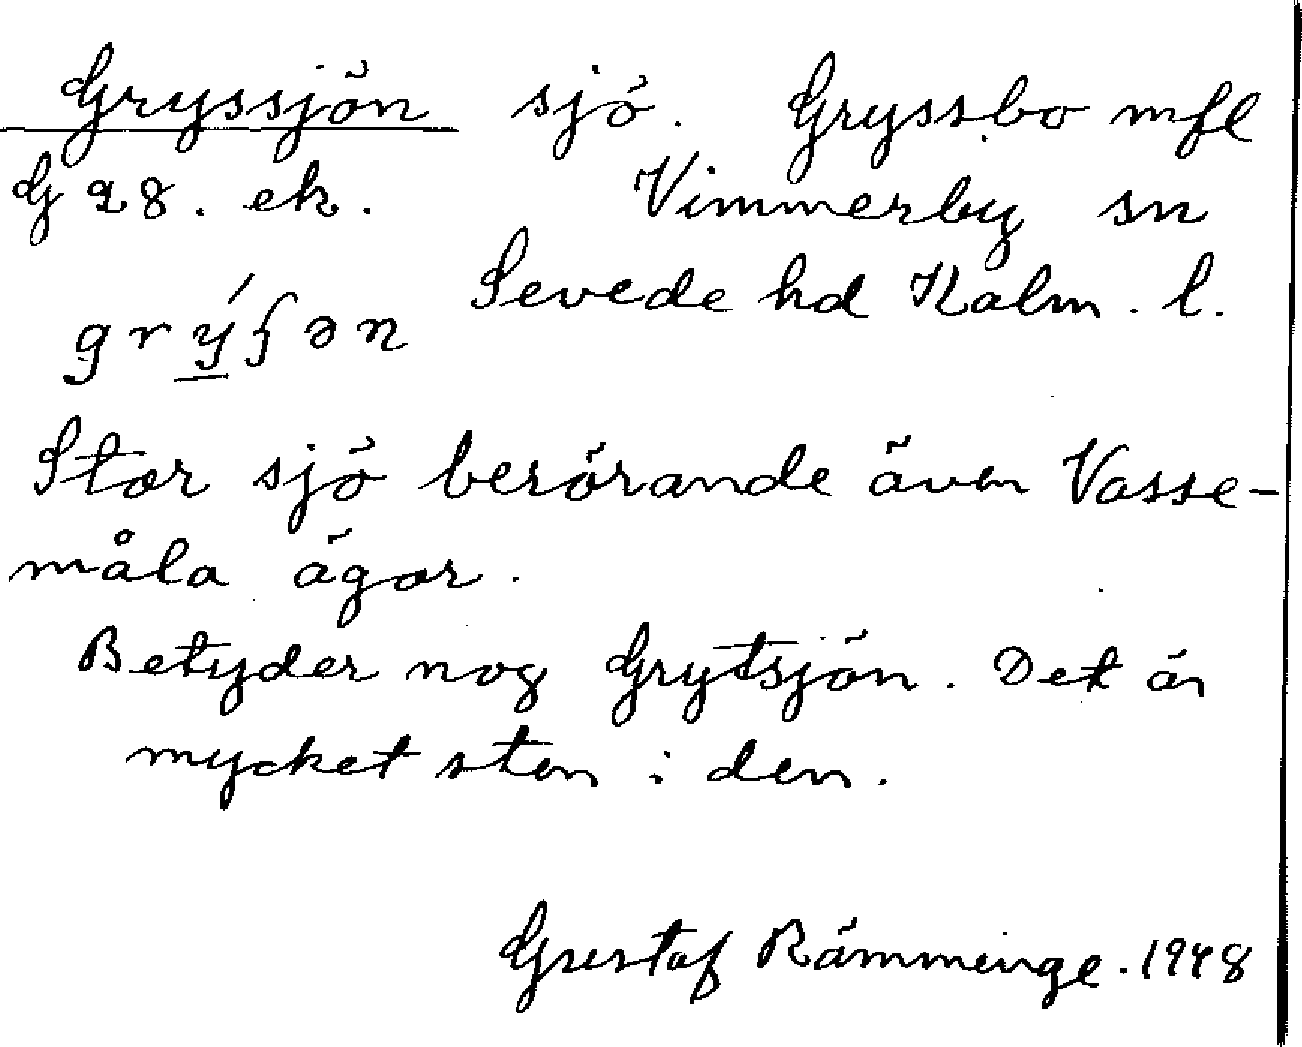 Gryssjön sjö. Gryssbo mfl
G 28. ek. Vimmerby sn
Sevede hd Kalm. l.
grýʃən
Stor sjö berörande även Vasse-
måla ägor.
Betyder nog Grytsjön. Det är
mycket sten i den.
Gustaf Rämminge. 1948